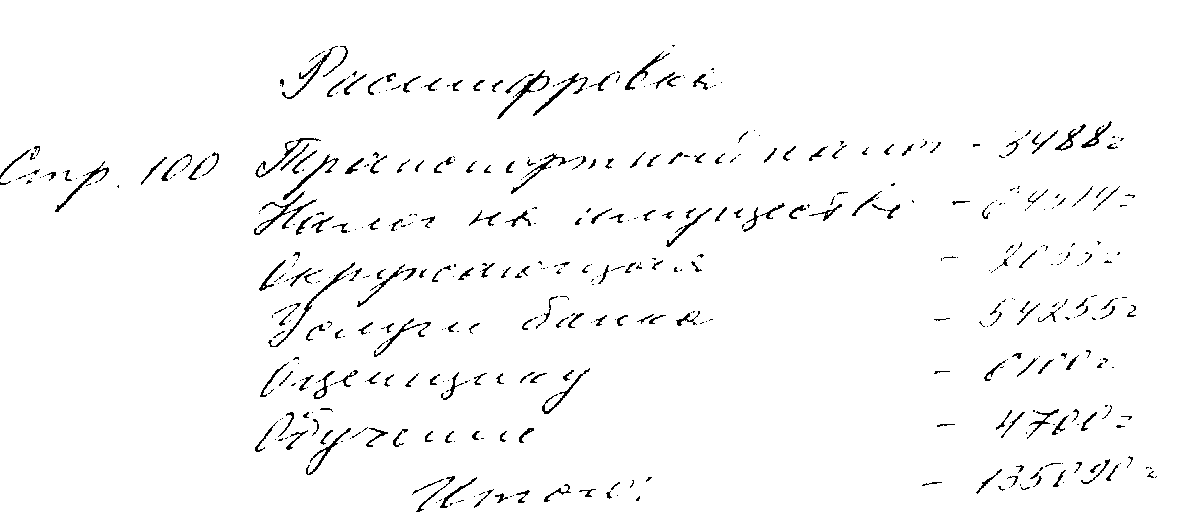 Расшифровка
Стр. 100 Транспортный налог - 3488=
Налог на имущество - 64514=
Окружающая - 2033=
Услуги банка - 54255=
Оценщику - 6100=
Обучение - 4700=
Итого: - 135090=